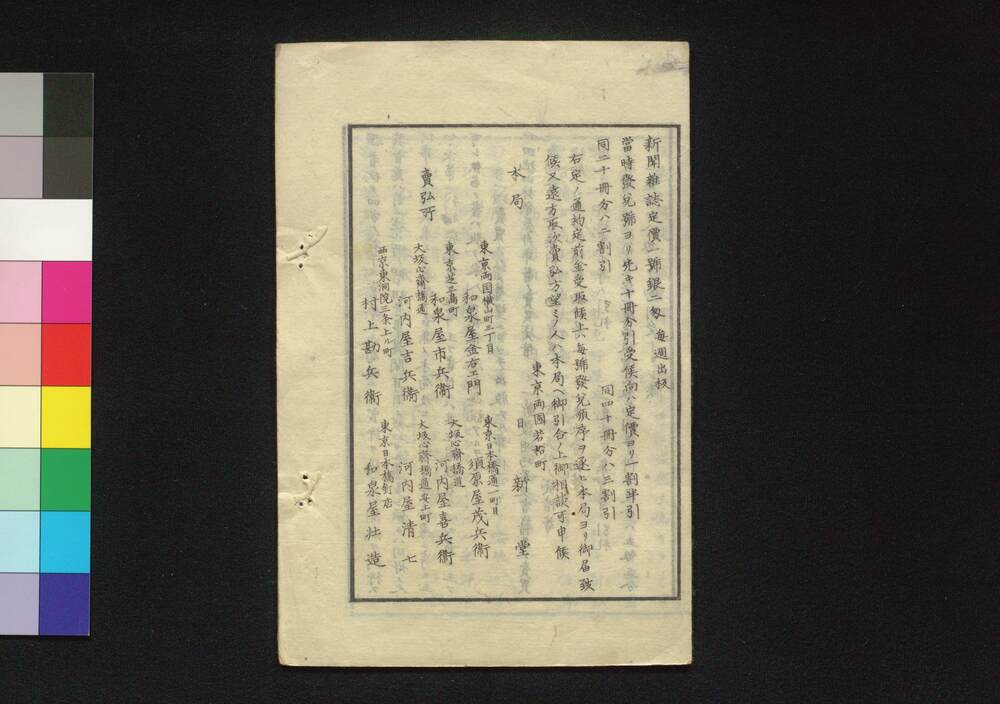 新聞雜誌定價一號銀二匁 每週出板
當時發兌號ヨリ先キ十冊分引受候向ハ定價ヨリ一割半引
同二十冊分ハ二割引 同四十冊分ハ三割引
右定ノ通約定前金受取候上ハ每號發兌順序ヲ逐ヒ本局ヨリ御届致
候又遠方取次賣弘方望ミノ人ハ本局ヘ御引合ノ上御相談可申候
東京両國若松町
本局 日新堂
賣弘所
東京両国横山町三丁目
和泉屋金右エ門
東京日本橋通一町目
須原屋茂兵衞
東京芝三島町
和泉屋市兵衞
大坂心齋橋通
河内屋喜兵衞
大坂心齋橋通
河内屋吉兵衞
大坂心齋橋通安土町
河内屋清七
西京東洞院三条上ル町
村上勘兵衞
東京日本橋釘店
和泉屋壮造